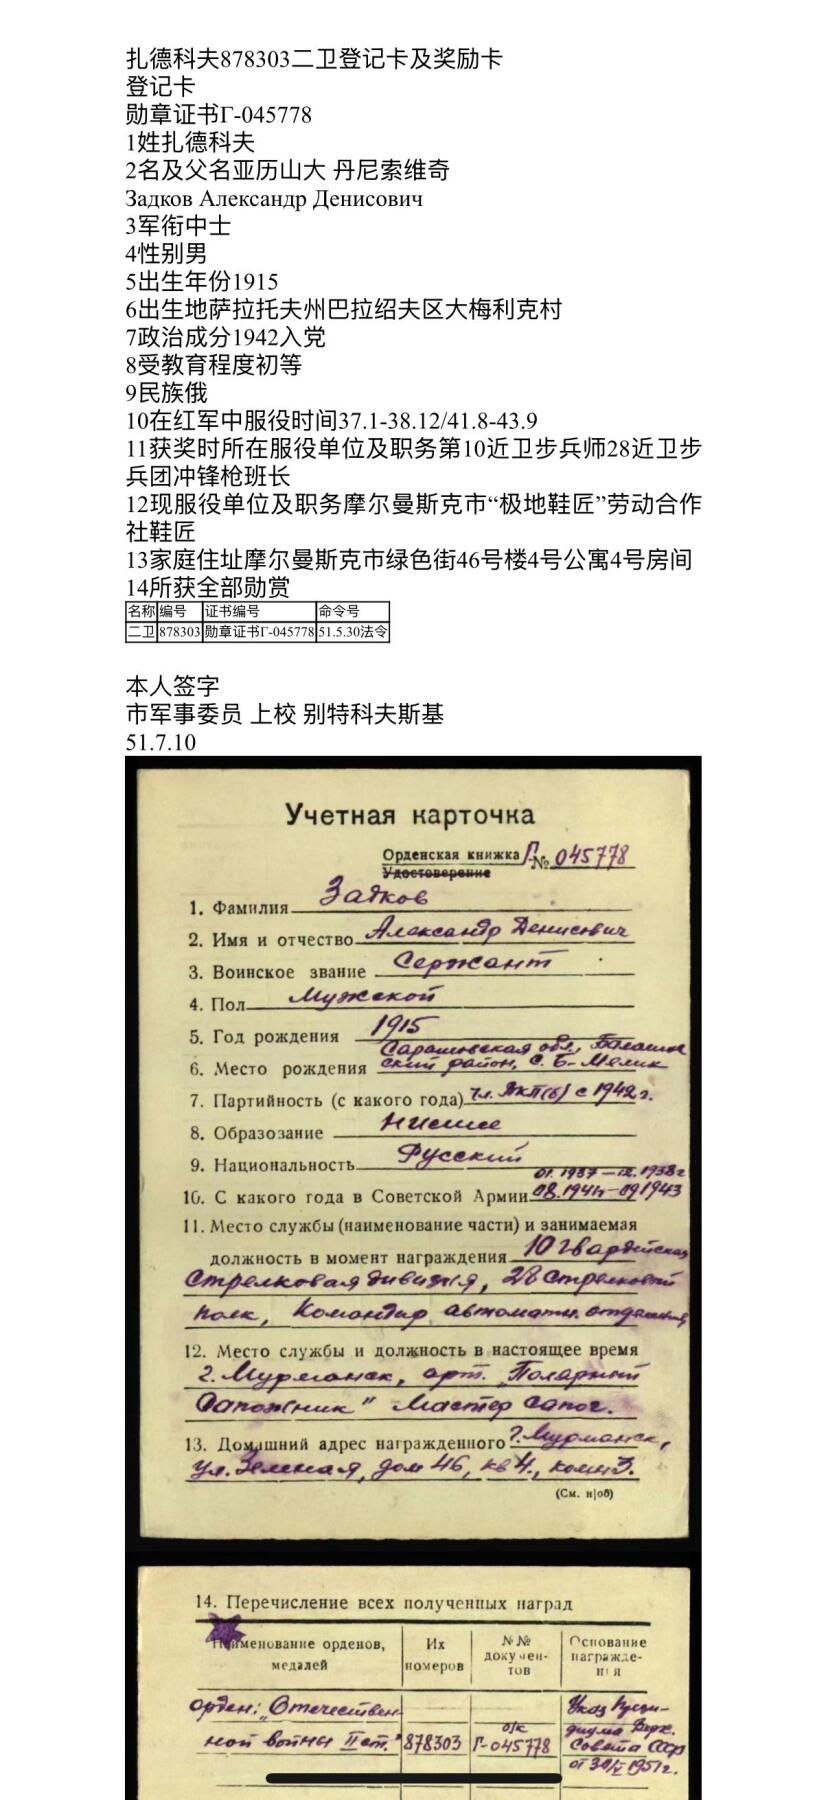 扎德科夫878303二卫登记卡及奖励卡
登记卡
勋章证书Г-045778
1姓扎德科夫
2名及父名亚历山大 丹尼索维奇
Задков Александр Денисович
3军衔中士
4性别男
5出生年份1915
6出生地萨拉托夫州巴拉绍夫区大梅利克村
7政治成分1942入党
8受教育程度初等
9民族俄
10在红军中服役时间37.1-38.12/41.8-43.9
11获奖时所在服役单位及职务第10近卫步兵师28近卫步
兵团冲锋枪班长
12现服役单位及职务摩尔曼斯克市“极地鞋匠”劳动合作
社鞋匠
13家庭住址摩尔曼斯克市绿色街46号楼4号公寓4号房间
14所获全部勋赏
名称 编号 证书编号 命令号
二卫 878303 勋章证书Г-045778 51.5.30法令
本人签字
市军事委员 上校 别特科夫斯基
51.7.10
Учетная карточка
Орденская книжка Г-№ 045778
Удостоверение
1. Фамилия Задков
2. Имя и отчество Александр Денисович
3. Воинское звание Сержант
4. Пол Мужской
5. Год рождения 1915
Саратовская обл., Балашов
6. Место рождения ский район, с. Б-Мелик
7. Партийность (с какого года) чл. ВКП(б) с 1942г.
8. Образование низшее
9. Национальность Русский
01.1937 — 1938г
10. С какого года в Советской Армии 08.1941-09.1943
11. Место службы (наименование части) и занимаемая
должность в момент награждения 10 Гвардейская
Стрелковая дивизия, 28 Стрелковый
полк, Командир автоматн. отделения
12. Место службы и должность в настоящее время
г. Мурманск, арт. „Полярный
Сапожник" Мастер сапог.
13. Домашний адрес награжденного г. Мурманск,
ул. Зеленая, дом 46, кв 4., комн 3.
(См. н|об)
14. Перечисление всех полученных наград
Наименование орденов, медалей Их номеров №№ документов Основание награждения
орден: „Отечествен- Указ Прези-
ной войны II ст." 878303 о/к Г-045778 диума Верх. Совета СССР
от 30/V 1951г.